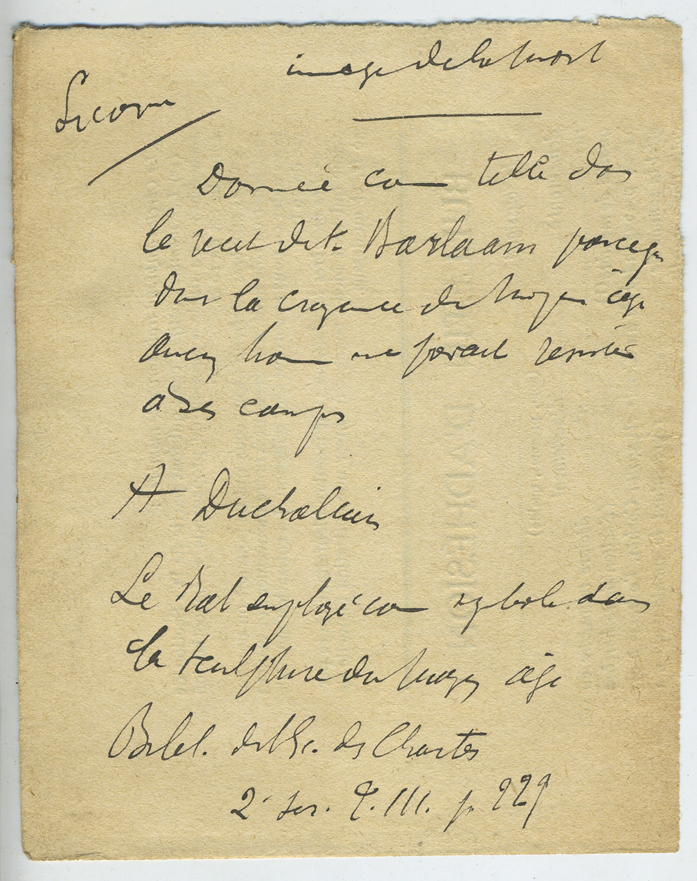 image de la mort
Licorne
Donnée com telle dans
le récit de St. Barlaam parceque
dans la croyance du moyen âge
aucun hom ne pouvait résister
à ses coups
A Duchalais
Le Rat employé com symbole dans
la sculpture du moyen âge
Bibl. de l'Ec. des Chartes
2e ser. T. III. p. 229